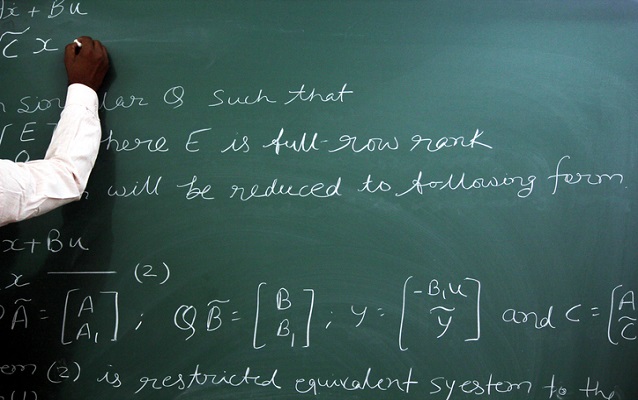 Ax + Bu
C̃ x
singular Q such that
[E where E is full-row rank
will be reduced to following form.
x + Bu
x ——— (2)
Ã = [A A₁] ; QB̃ = [B B₁] ; y = [-B₁u ỹ] and C = [A C̃
(2) is restricted equivalent syestem to the
(1)